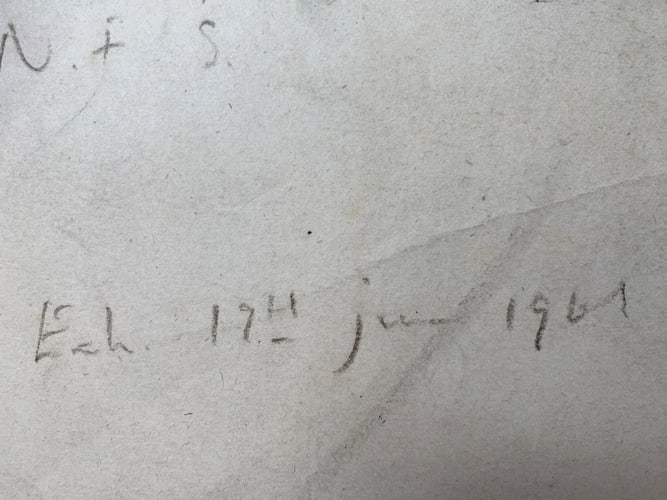 N. F S.
Exh. 17TH june 1961